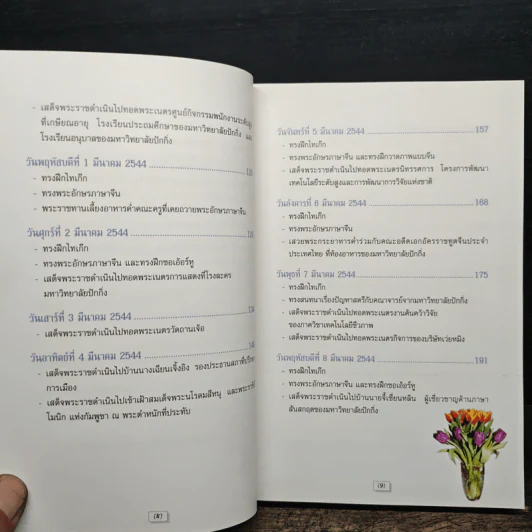 - เสด็จพระราชดำเนินไปทอดพระเนตรศูนย์กิจกรรมพนักงานระดับสูง
ที่เกษียณอายุ โรงเรียนประถมศึกษาของมหาวิทยาลัยปักกิ่ง และ
โรงเรียนอนุบาลของมหาวิทยาลัยปักกิ่ง
วันพฤหัสบดีที่ 1 มีนาคม 2544
- ทรงฝึกไทเก๊ก
- ทรงพระอักษรภาษาจีน
- พระราชทานเลี้ยงอาหารค่ำคณะครูที่เคยถวายพระอักษรภาษาจีน
วันศุกร์ที่ 2 มีนาคม 2544
- ทรงฝึกไทเก๊ก
- ทรงพระอักษรภาษาจีน และทรงฝึกซอเอ้อร์หู
- เสด็จพระราชดำเนินไปทอดพระเนตรการแสดงที่โรงละคร
มหาวิทยาลัยปักกิ่ง
วันเสาร์ที่ 3 มีนาคม 2544
- เสด็จพระราชดำเนินไปทอดพระเนตรวัดถานเจ้อ
วันอาทิตย์ที่ 4 มีนาคม 2544
- เสด็จพระราชดำเนินไปบ้านนางเฉียนเจิ้งอิง รองประธานสภาที่ปรึกษา
การเมือง
- เสด็จพระราชดำเนินไปเข้าเฝ้าสมเด็จพระนโรดมสีหนุ และพระราชินี
โมนิก แห่งกัมพูชา ณ พระตำหนักที่ประทับ
(8)
วันจันทร์ที่ 5 มีนาคม 2544 157
- ทรงฝึกไทเก๊ก
- ทรงพระอักษรภาษาจีน และทรงฝึกวาดภาพแบบจีน
- เสด็จพระราชดำเนินไปทอดพระเนตรนิทรรศการ โครงการพัฒนา
เทคโนโลยีระดับสูงและการพัฒนาการวิจัยแห่งชาติ
วันอังคารที่ 6 มีนาคม 2544 168
- ทรงฝึกไทเก๊ก
- ทรงพระอักษรภาษาจีน
- เสวยพระกระยาหารค่ำร่วมกับคณะอดีตเอกอัครราชทูตจีนประจำ
ประเทศไทย ที่ห้องอาหารของมหาวิทยาลัยปักกิ่ง
วันพุธที่ 7 มีนาคม 2544 175
- ทรงฝึกไทเก๊ก
- ทรงสนทนาเรื่องปัญหาสตรีกับคณาจารย์จากมหาวิทยาลัยปักกิ่ง
- เสด็จพระราชดำเนินไปทอดพระเนตรงานค้นคว้าวิจัย
ของภาควิชาเทคโนโลยีชีวภาพ
- เสด็จพระราชดำเนินไปทอดพระเนตรกิจการของบริษัทเว่ยหมิง
วันพฤหัสบดีที่ 8 มีนาคม 2544 191
- ทรงฝึกไทเก๊ก
- ทรงพระอักษรภาษาจีน และทรงฝึกซอเอ้อร์หู
- เสด็จพระราชดำเนินไปบ้านนายจี้เซี่ยนหลิน ผู้เชี่ยวชาญด้านภาษา
สันสกฤตของมหาวิทยาลัยปักกิ่ง
(9)